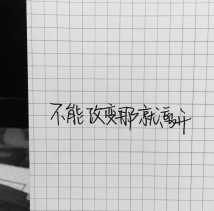 不能改变那就离开